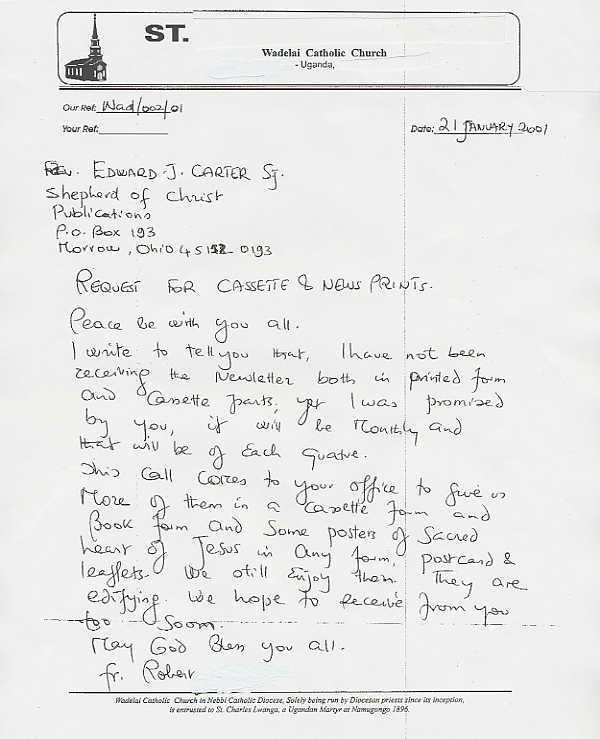 ST.
Wadelai Catholic Church
- Uganda,
Our Ref: Wad/002/01
Your Ref:
Date: 21 JANUARY 2001
Rev. EDWARD J. CARTER SJ.
Shepherd of Christ
Publications
P.O. Box 193
Morrow, Ohio 45152-0193
REQUEST FOR CASSETTE & NEWS PRINTS.
Peace be with you all.
I write to tell you that, I have not been
receiving the Newsletter both in printed form
and Cassette parts, yet I was promised
by you, it will be Monthly and
that will be of Each Quatre.
This Call comes to your office to give us
More of them in a Cassette form and
Book form and Some posters of Sacred
heart of Jesus in any form, postcard &
leaflets. We still Enjoy them. They are
edifying. We hope to receive from you
too Soon.
May God Bless you all.
fr. Robert
Wadelai Catholic Church in Nebbi Catholic Diocese, Solely being run by Diocesan priests since its inception,
is entrusted to St. Charles Lwanga, a Ugandan Martyr at Namugongo 1896.